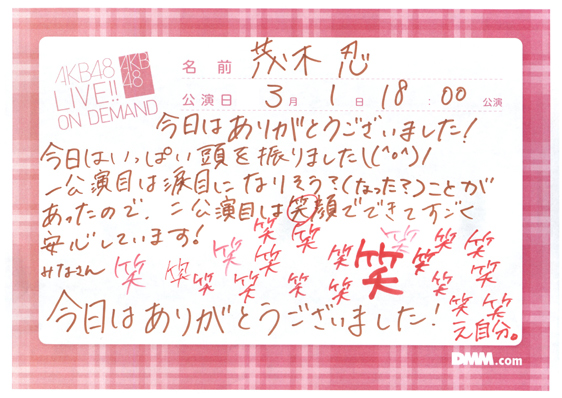 AKB48
LIVE!!
ON DEMAND
AKB
48
名前 茂木 忍
公演日 3月 1日 18:00 公演
今日はありがとうございました!
今日はいっぱい頭を振りました\(^o^)/
一公演目は涙目になりそう?(なった?)ことが
あったので、二公演目は笑顔でできてすごく
安心しています!
みなさん
笑 笑 笑 笑 笑 笑 笑 笑 笑 笑 笑 笑 笑 笑 笑 笑 笑 笑 笑 笑 笑
今日はありがとうございました!
え自分。
DMM.com